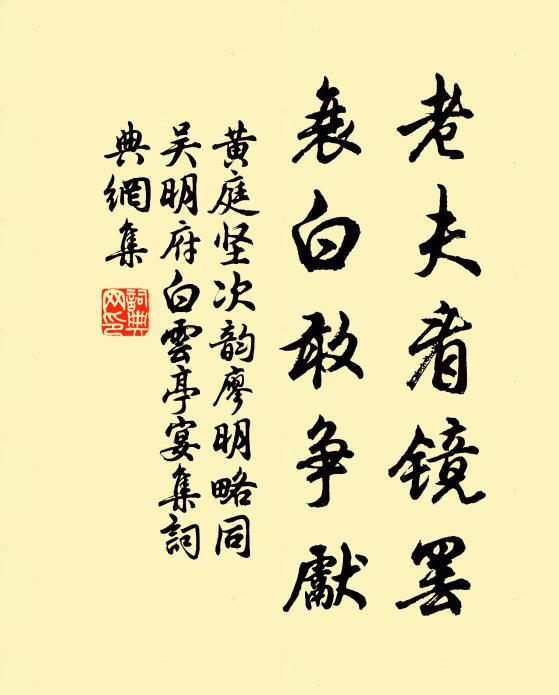 老夫看镜罢
衰白敢争獻
黄庭坚次韵廖明略同
吴明府白雲亭宴集詞
典網集
詞典網印